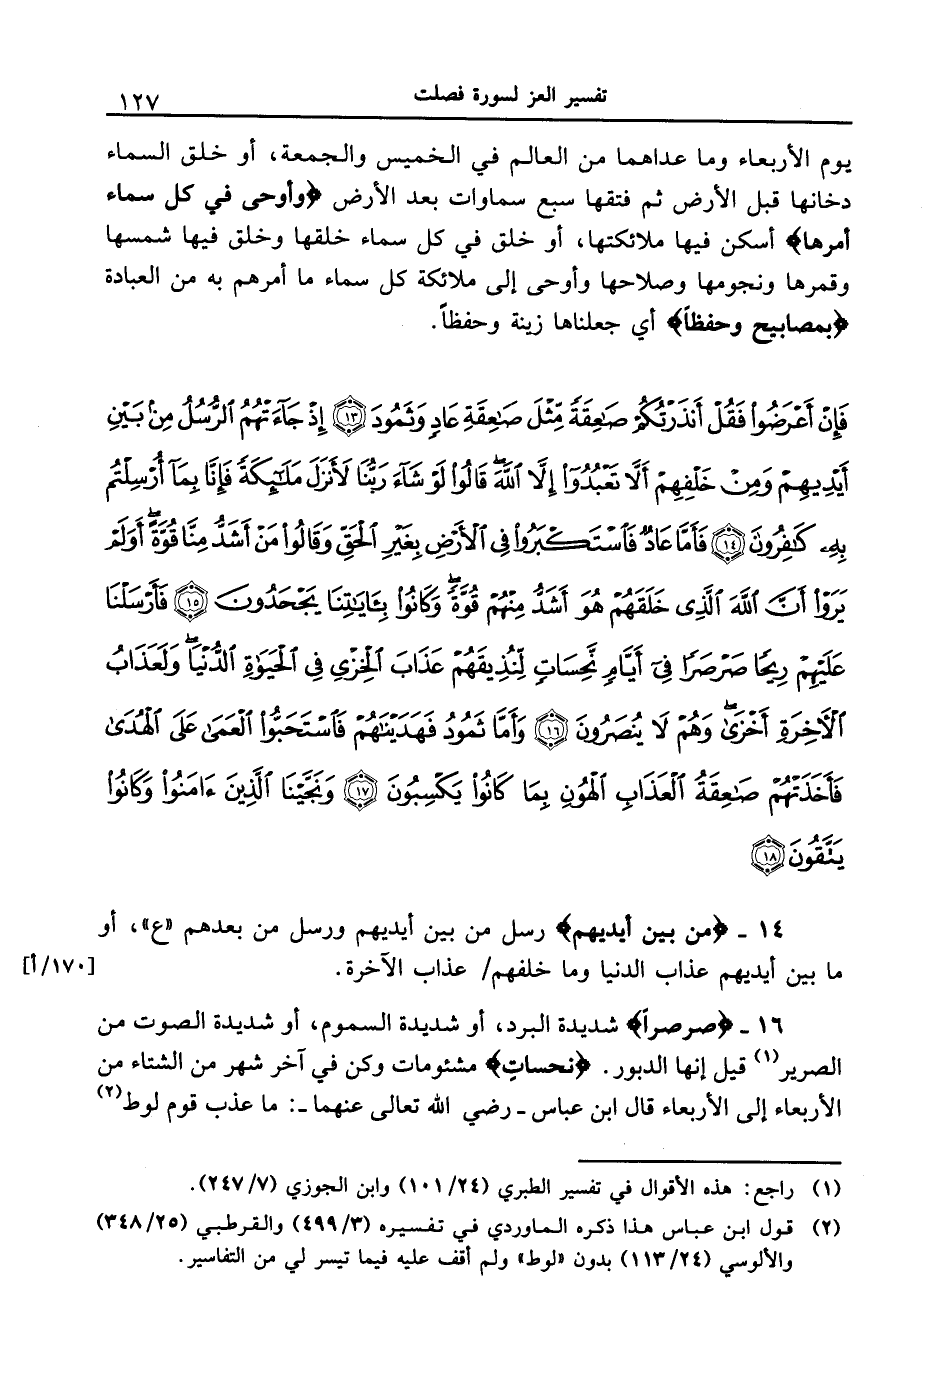 تفسير العز لسورة فصلت ١٢٧
يوم الأربعاء وما عداهما من العالم في الخميس والجمعة، أو خلق السماء
دخانها قبل الأرض ثم فتقها سبع سماوات بعد الأرض ﴿وأوحى في كل سماء
أمرها﴾ أسكن فيها ملائكتها، أو خلق في كل سماء خلقها وخلق فيها شمسها
وقمرها ونجومها وصلاحها وأوحى إلى ملائكة كل سماء ما أمرهم به من العبادة
﴿بمصابيح وحفظاً﴾ أي جعلناها زينة وحفظاً.
فَإِنْ أَعْرَضُوا۟ فَقُلْ أَنذَرْتُكُمْ صَٰعِقَةً مِّثْلَ صَٰعِقَةِ عَادٍ وَثَمُودَ ١٣ إِذْ جَآءَتْهُمُ ٱلرُّسُلُ مِنۢ بَيْنِ
أَيْدِيهِمْ وَمِنْ خَلْفِهِمْ أَلَّا تَعْبُدُوٓا۟ إِلَّا ٱللَّهَ ۖ قَالُوا۟ لَوْ شَآءَ رَبُّنَا لَأَنزَلَ مَلَٰٓئِكَةً فَإِنَّا بِمَآ أُرْسِلْتُم
بِهِۦ كَٰفِرُونَ ١٤ فَأَمَّا عَادٌ فَٱسْتَكْبَرُوا۟ فِى ٱلْأَرْضِ بِغَيْرِ ٱلْحَقِّ وَقَالُوا۟ مَنْ أَشَدُّ مِنَّا قُوَّةً ۖ أَوَلَمْ
يَرَوْا۟ أَنَّ ٱللَّهَ ٱلَّذِى خَلَقَهُمْ هُوَ أَشَدُّ مِنْهُمْ قُوَّةً ۖ وَكَانُوا۟ بِـَٔايَٰتِنَا يَجْحَدُونَ ١٥ فَأَرْسَلْنَا
عَلَيْهِمْ رِيحًا صَرْصَرًا فِىٓ أَيَّامٍ نَّحِسَاتٍ لِّنُذِيقَهُمْ عَذَابَ ٱلْخِزْىِ فِى ٱلْحَيَوٰةِ ٱلدُّنْيَا ۖ وَلَعَذَابُ
ٱلْءَاخِرَةِ أَخْزَىٰ ۖ وَهُمْ لَا يُنصَرُونَ ١٦ وَأَمَّا ثَمُودُ فَهَدَيْنَٰهُمْ فَٱسْتَحَبُّوا۟ ٱلْعَمَىٰ عَلَى ٱلْهُدَىٰ
فَأَخَذَتْهُمْ صَٰعِقَةُ ٱلْعَذَابِ ٱلْهُونِ بِمَا كَانُوا۟ يَكْسِبُونَ ١٧ وَنَجَّيْنَا ٱلَّذِينَ ءَامَنُوا۟ وَكَانُوا۟
يَتَّقُونَ ١٨
١٤ ـ ﴿من بين أيديهم﴾ رسل من بين أيديهم ورسل من بعدهم «ع»، أو
ما بين أيديهم عذاب الدنيا وما خلفهم/ عذاب الآخرة. [١٧٠/أ]
١٦ ـ ﴿صرصراً﴾ شديدة البرد، أو شديدة السموم، أو شديدة الصوت من
الصرير(١) قيل إنها الدبور. ﴿نحسات﴾ مشئومات وكن في آخر شهر من الشتاء من
الأربعاء إلى الأربعاء قال ابن عباس ـ رضي الله تعالى عنهما ـ: ما عذب قوم لوط(٢)
(١) راجع: هذه الأقوال في تفسير الطبري (١٠١/٢٤) وابن الجوزي (٢٤٧/٧).
(٢) قول ابن عباس هذا ذكره الماوردي في تفسيره (٤٩٩/٣) والقرطبي (٣٤٨/٢٥)
والألوسي (١١٣/٢٤) بدون «لوط» ولم أقف عليه فيما تيسر لي من التفاسير.